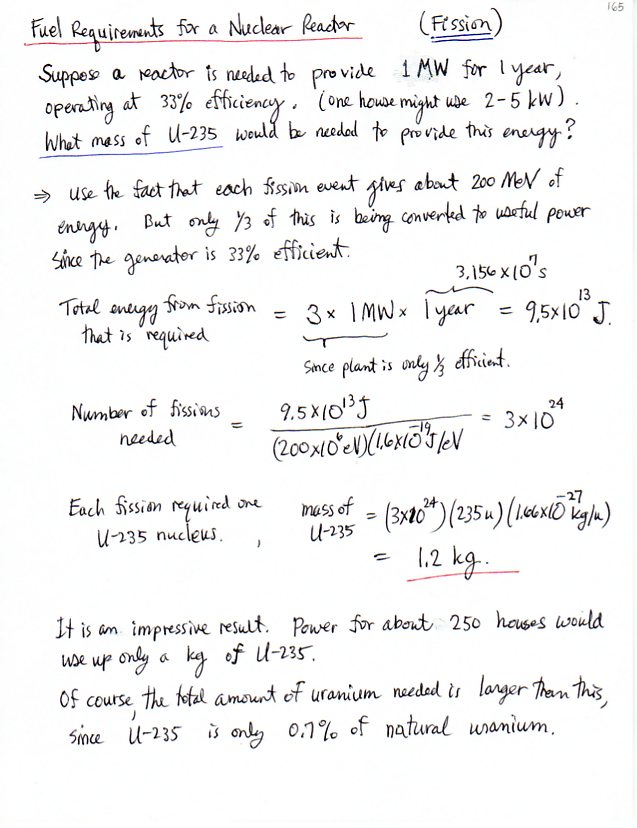 165
Fuel Requirements for a Nuclear Reactor (Fission)
Suppose a reactor is needed to provide 1 MW for 1 year,
operating at 33% efficiency. (one house might use 2-5 kW).
What mass of U-235 would be needed to provide this energy?
⇒ Use the fact that each fission event gives about 200 MeV of
energy. But only 1/3 of this is being converted to useful power
since the generator is 33% efficient.
3.156×10⁷ s
Total energy from fission = 3 × 1 MW × 1 year = 9.5×10¹³ J.
that is required
Since plant is only 1/3 efficient.
Number of fissions needed = 9.5×10¹³ J / (200×10⁶ eV)(1.6×10⁻¹⁹ J/eV) = 3×10²⁴
Each fission required one U-235 nucleus. , mass of U-235 = (3×10²⁴)(235 u)(1.66×10⁻²⁷ kg/u)
= 1.2 kg.
It is an impressive result. Power for about 250 houses would
use up only a kg of U-235.
Of course, the total amount of uranium needed is larger than this,
since U-235 is only 0.7% of natural uranium.